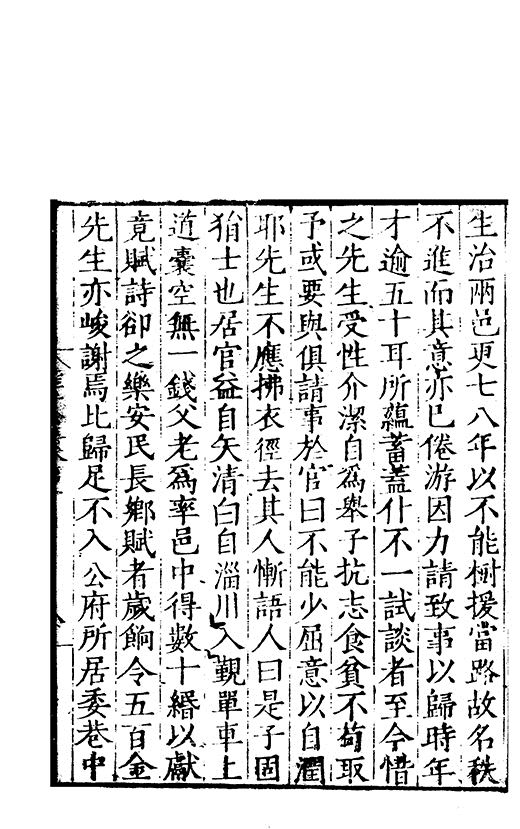 生治兩邑更七八年以不能樹援當路故名秩
不進而其意亦已倦游因力請致事以歸時年
才逾五十耳所蘊蓄蓋什不一試談者至今惜
之先生受性介潔自爲舉子抗志食貧不苟取
予或要與俱請事於官曰不能少屈意以自潤
耶先生不應拂衣徑去其人慚語人曰是子固
狷士也居官益自矢清白自淄川入覲單車上
道囊空無一錢父老爲率邑中得數十緡以獻
竟賦詩卻之樂安民長鄉賦者歲餉令五百金
先生亦峻謝焉比歸足不入公府所居委巷中